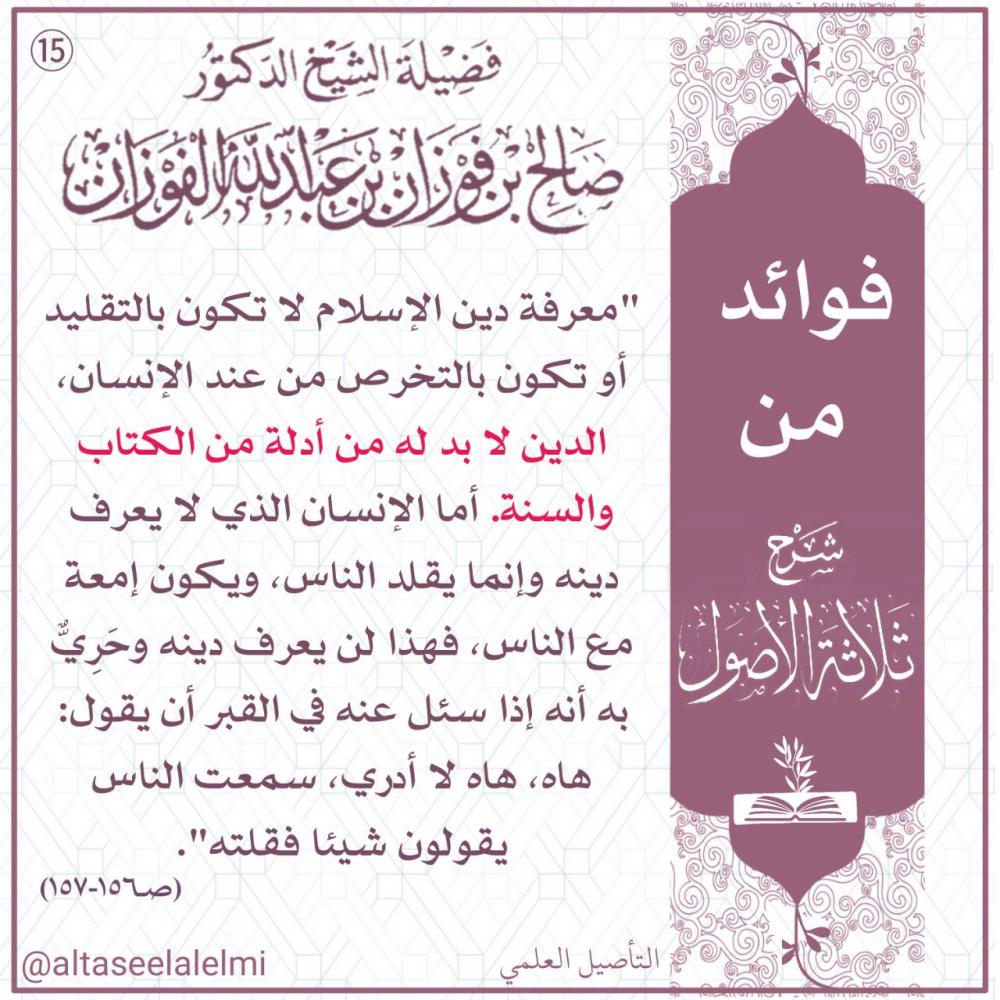 15
فضيلة الشيخ الدكتور
صالح بن فوزان بن عبد الله الفوزان
فوائد
من
شرح
ثلاثة الأصول
"معرفة دين الإسلام لا تكون بالتقليد
أو تكون بالتخرص من عند الإنسان،
الدين لا بد له من أدلة من الكتاب
والسنة. أما الإنسان الذي لا يعرف
دينه وإنما يقلد الناس، ويكون إمعة
مع الناس، فهذا لن يعرف دينه وحَرِيٌّ
به أنه إذا سئل عنه في القبر أن يقول:
هاه، هاه لا أدري، سمعت الناس
يقولون شيئا فقلته".
(صـ١٥٦-١٥٧)
التأصيل العلمي
@altaseelalelmi